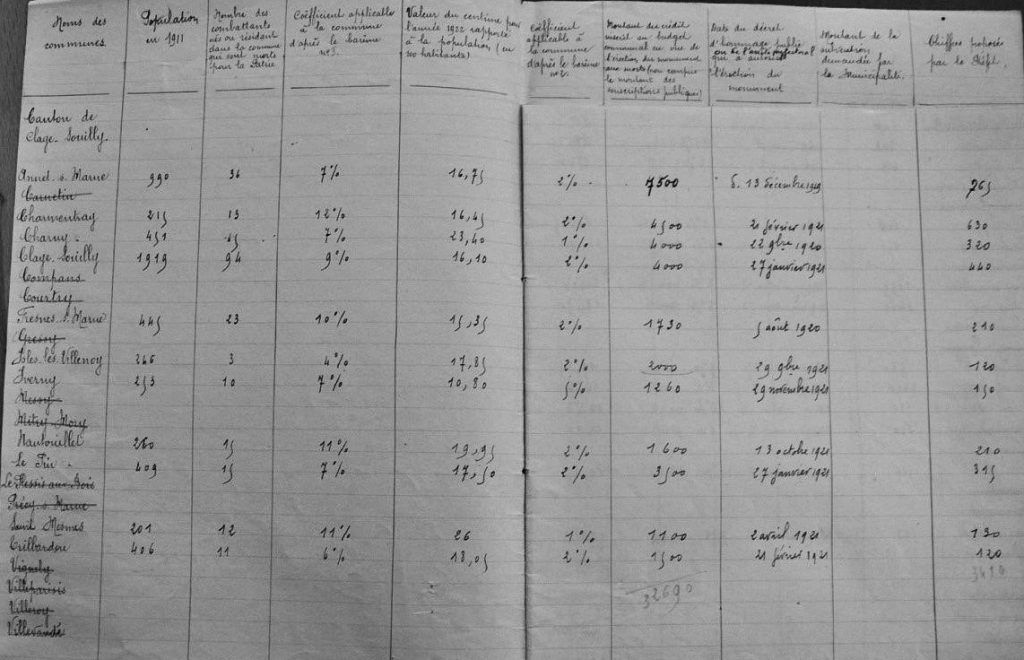 Noms des communes.
Population en 1911
Nombre des combattants nés ou résidant dans la commune qui sont morts pour la Patrie
Coëfficient applicable à la commune d'après le barème n° 1.
Valeur du centime pour l'année 1922 rapportée à la population (en 100 habitants)
Coëfficient applicable à la commune d'après le barème n° 2.
Montant du crédit inscrit au budget communal en vue de l'érection du monument aux morts (non compris le montant des souscriptions publiques)
Date du décret d'hommage public ou de l'arrêté préfectoral qui a autorisé l'érection du monument
Montant de la subvention demandée par la Municipalité.
Chiffres proposés par le Préfet.
Canton de
Claye-Souilly.
Annet s. Marne 990 36 7% 16,75 2% 7500 d. 13 décembre 1919 765
Carnetin
Charmentray 215 13 12% 16,45 2% 4500 20 février 1921 630
Charny 451 15 7% 23,40 1% 4000 22 9bre 1920 320
Claye-Souilly 1919 94 9% 16,10 2% 4000 27 janvier 1921 440
Compans
Courtry
Fresnes s. Marne 445 23 10% 15,35 2% 1730 5 août 1920 210
Gressy
Isles-les-Villenoy 246 3 4% 17,85 2% 2000 29 9bre 1921 120
Iverny 253 10 7% 10,80 5% 1260 29 novembre 1921 150
Messy
Mitry-Mory
Nantouillet 260 15 11% 19,95 2% 1600 13 octobre 1921 210
Le Pin 409 15 7% 17,50 2% 3500 27 janvier 1921 315
Le Plessis-aux-Bois
Précy s. Marne
Saint Mesmes 201 12 11% 26 1% 1100 2 avril 1921 130
Trilbardou 406 11 6% 18,05 2% 1500 21 février 1921 120
Vignely
Villeparisis
32690
Villeroy
Villevaudé